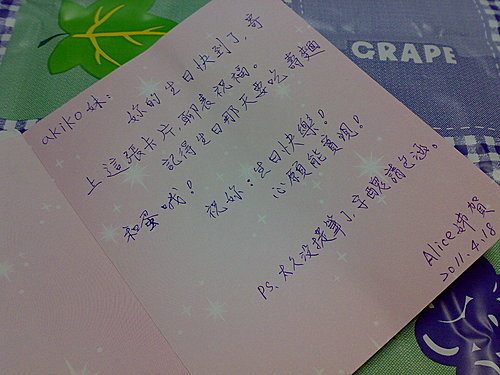 GRAPE
akiko妹:
妳的生日快到了,寄
上這張卡片,聊表祝福。
記得生日那天要吃壽麵
和蛋哦!
祝妳:生日快樂!
心願能實現!
PS.太久沒提筆了,字醜請包涵。
Alice姊賀
2011.4.18